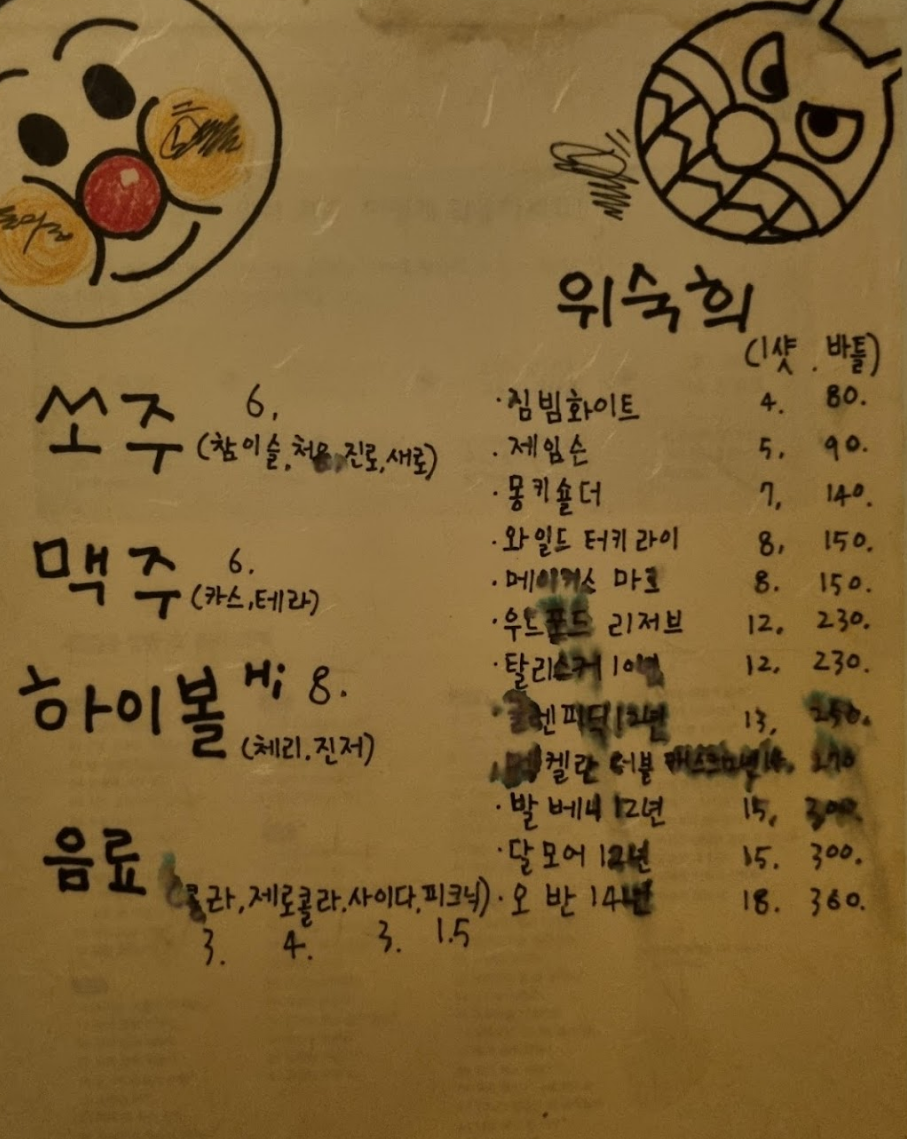 위숙희
(1샷 . 바틀)
쏘주 6.
(참이슬,처음,진로,새로)
맥주 6.
(카스,테라)
하이볼 Hi 8.
(체리.진저)
음료
(콜라,제로콜라.사이다.피크닉)
3. 4. 3. 1.5
·짐빔화이트 4. 80.
·제임슨 5. 90.
·몽키숄더 7, 140.
·와일드 터키 라이 8, 150.
·메이커스 마크 8. 150.
·우드포드 리저브 12. 230.
·탈리스커 10년 12, 230.
·글렌피딕 12년 13, 250.
·멕켈란 더블 캐스크 12년 14. 270
·발베니 12년 15, 300.
·달모어 12년 15. 300.
·오반 14년 18. 360.